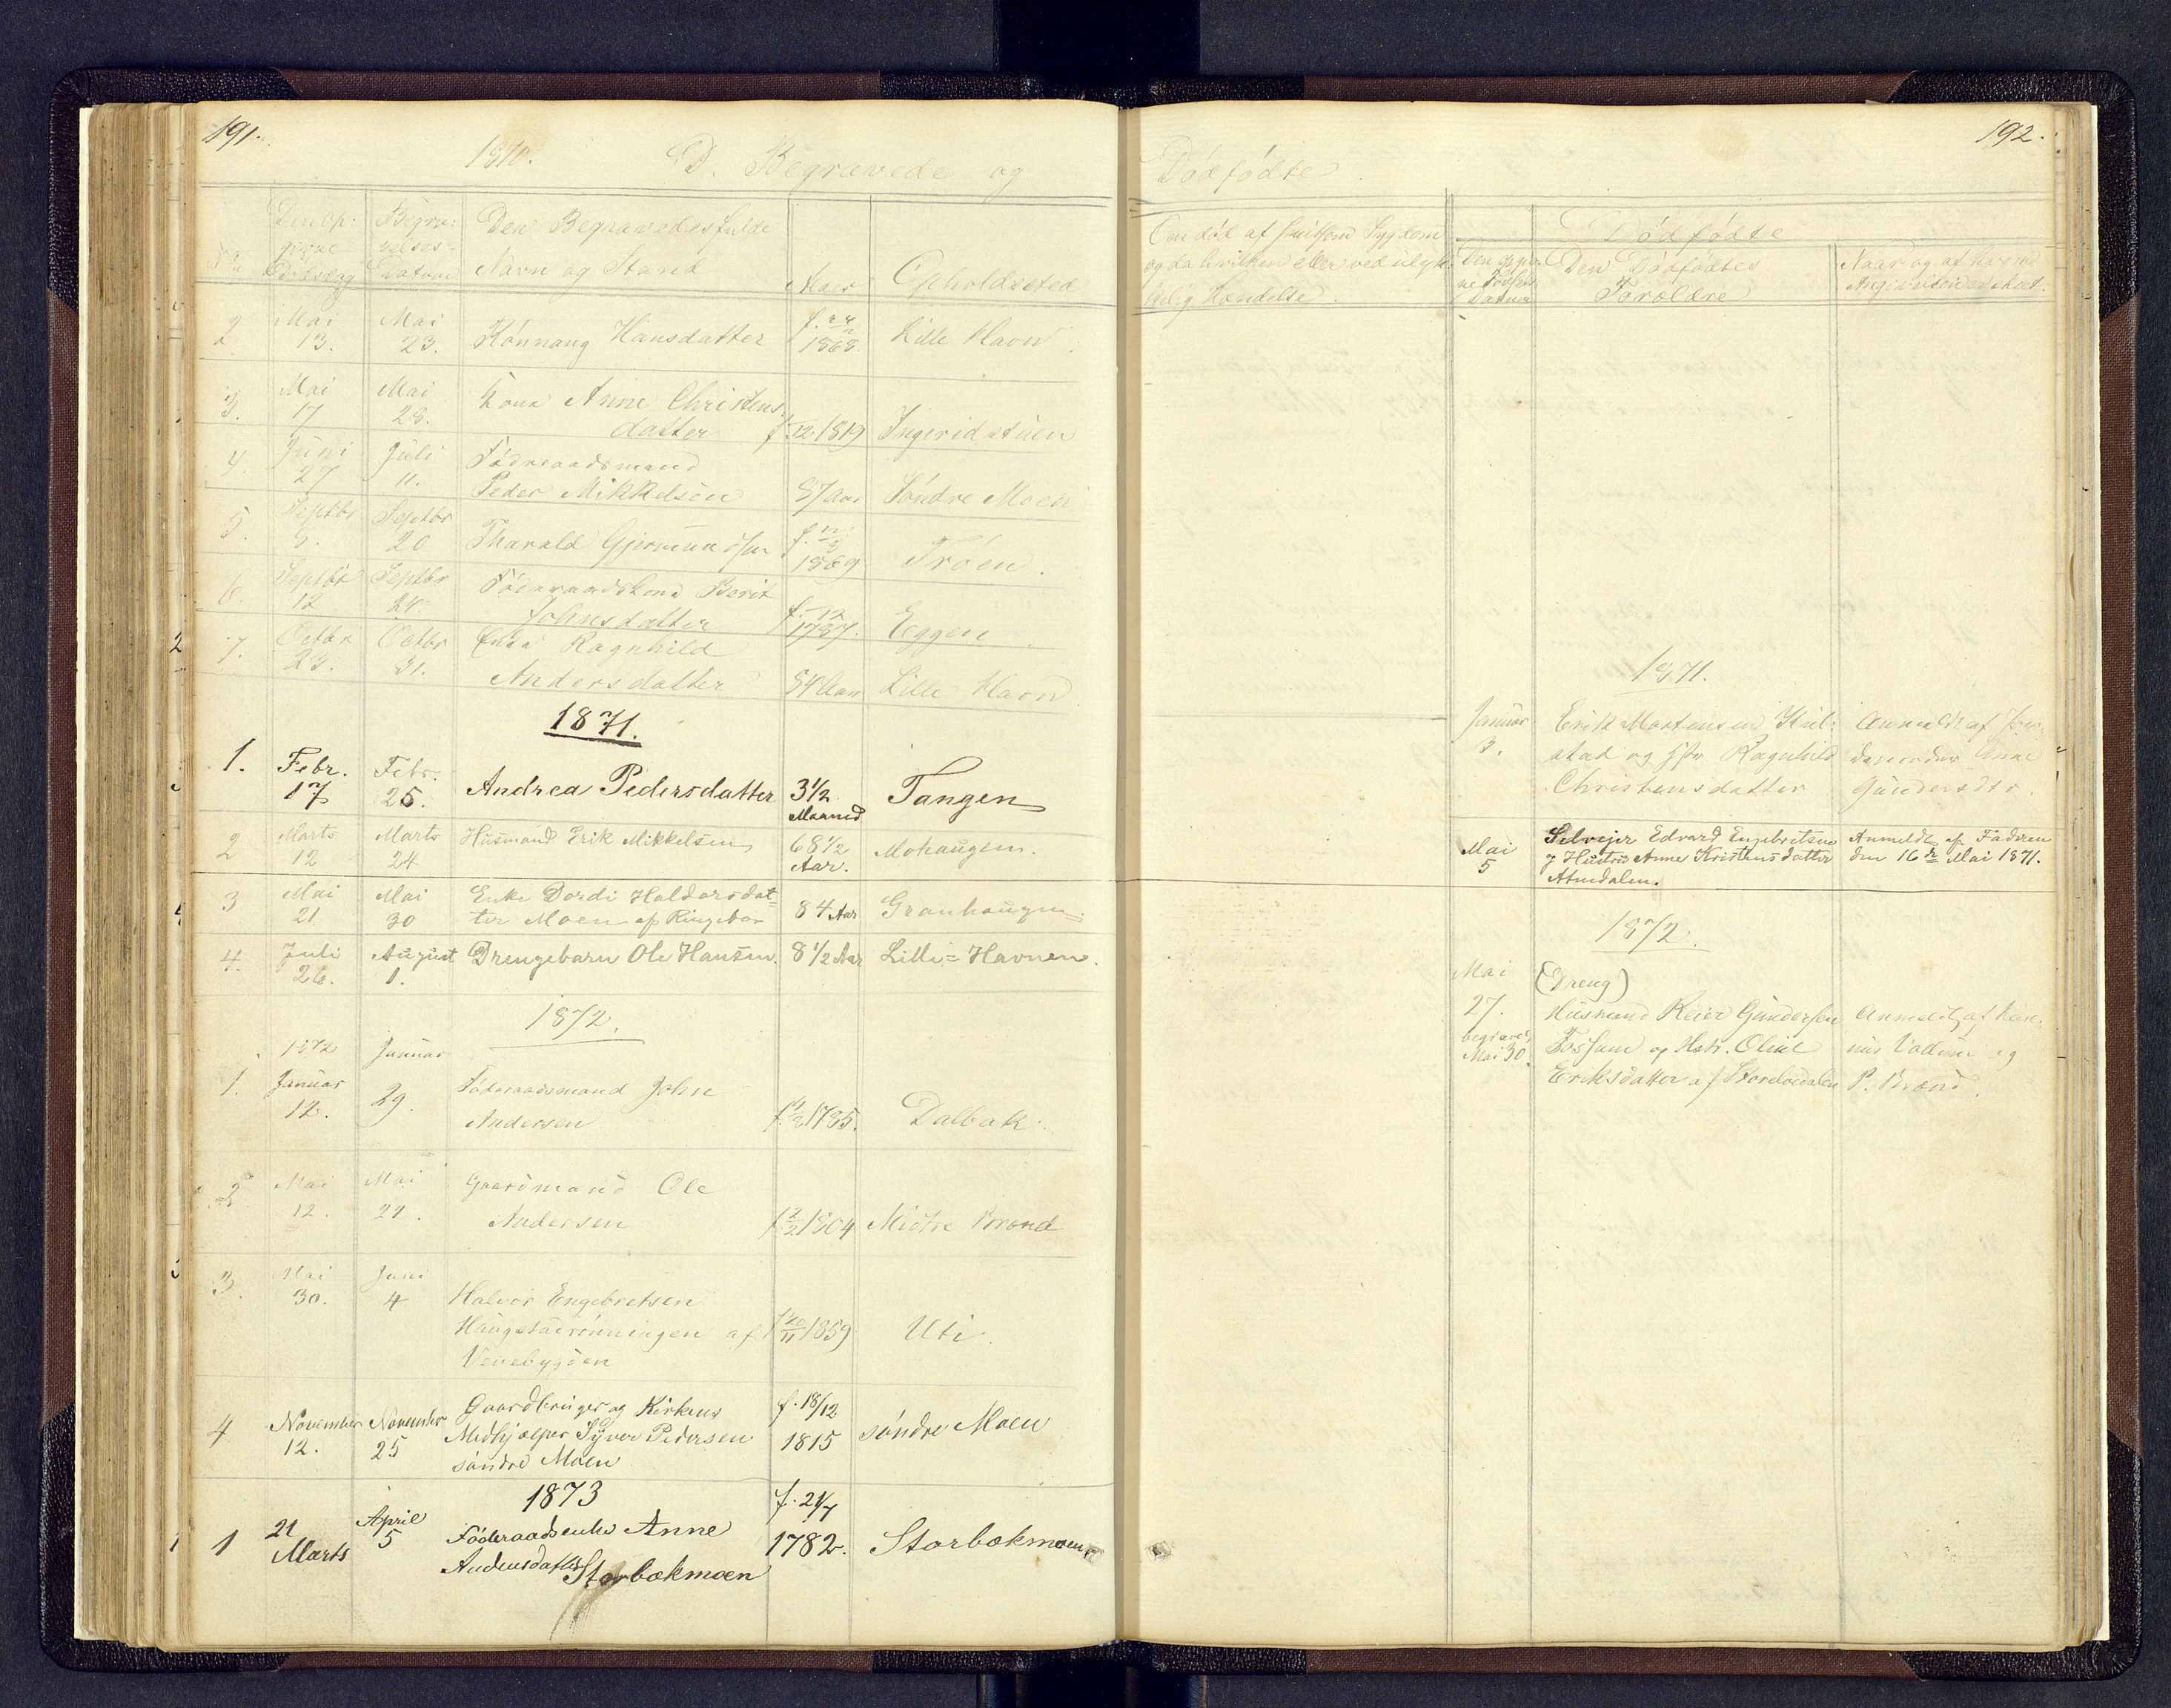 191.
1870. D. Begravede og
Den op-
givne
Dødsdag
Begra-
velses-
Datum
Den Begravedes fulde
Navn og Stand
Alder
Opholdssted
2
Mai
13.
Mai
23.
Rönnaug Hansdatter
1868.
Lille Havn
3.
Mai
17
Mai
28.
Kone Anne Christens
datter
1819
Ingeridstuen
4.
Juni
27
Juli
11.
Föderaadsmand
Peder Mikkelsen
87 Aar
Söndre Moen
5.
Septbr
Septbr
20
Tharald Gjermundsen
1869
Tröen.
6.
Septbr
12
Septbr
24.
Föderaadskone Berit
Johnsdatter
1787.
Eggen
7.
Octbr
23.
Octbr
31.
Enke Ragnhild
Andersdatter
84 Aar
Lille Havn
1871.
1.
Febr.
17
Febr.
25.
Andrea Pedersdatter
3 1/2
Maaned
Tangen
2
Marts
12
Marts
24
Husmand Erik Mikkelsen
68 1/2
Aar.
Mohaugen.
3
Mai
21
Mai
30
Enke Dordi Haldorsdat-
ter Moen af Ringebo
84 Aar
Granhaugen.
4.
Juli
26.
August
1.
Drengebarn Ole Hansen.
8 1/2 Aar
Lille=Havnen.
1872.
1.
1872
Januar
12.
Januar
29.
Föderaadsmand John
Andersen
1785.
Dalbak.
2
Mai
12.
Mai
22.
Gaardmand Ole
Andersen
1804
Midtre Brænd
3.
Mai
30.
Juni
4
Halvor Engebretsen
Haugstadrönningen af
Venebygden
1859
Uti.
4
November
12.
November
25
Gaardbruger og Kirkens
Medhjælper Syver Pedersen
söndre Moen
f. 18/12
1815
söndre Moen
1873
1
21
Marts
April
5
Föderaadsenke Anne
Andersdatter Storbækmoen
f. 21/7
1782.
Storbækmoen
192.
Dødfødte.
Om død af hvilken
og da hvilken eller ved ulyk-
kelig Hændelse.
Dødfødte
Datum
Den Dødfødtes
Forældre
Naar og af hvem
1871.
Januar
3.
Erik Mortensen Kul-
stad og Hstr Ragnhild
Christensdatter
Anmeldt af Jor-
demoder Anne
Gundersdtr.
Mai
5
Selvejer Edvard Engebretsen
og Hustru Anne Kristensdatter
Atnedalen.
Anmeldt af Faderen
den 16de Mai 1871.
1872.
Mai
27.
begravet
Mai 30.
(Dreng)
Husmand Reier Gundersen
Fossum og Hstr. Oline
Eriksdatter af Storelvedalen
Anmeldt af
og
P. Brænd.